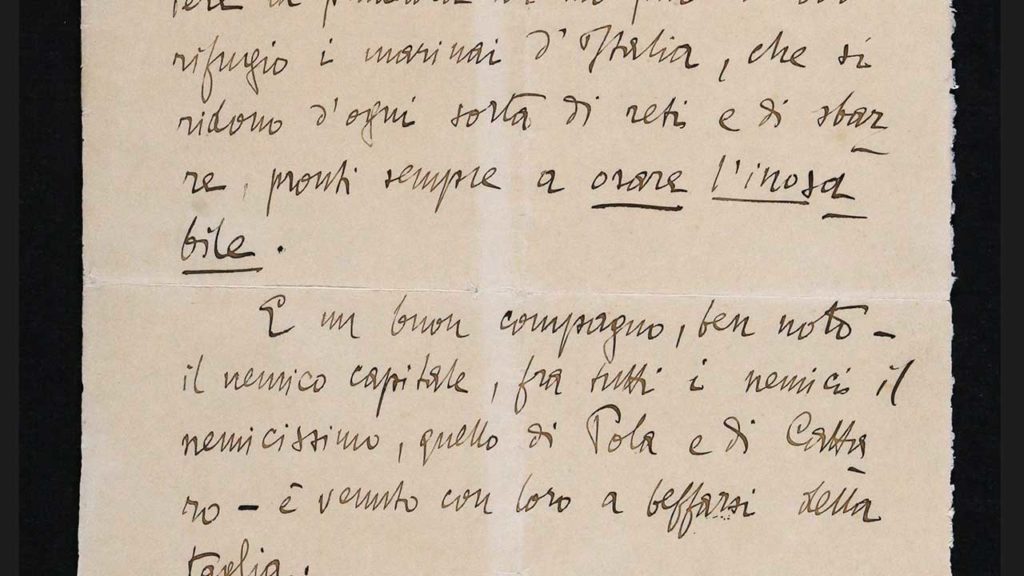 rifugio i marinai d'Italia, che si
ridono d'ogni sorta di reti e di sbar
re, pronti sempre a osare l'inosa
bile.
E un buon compagno, ben noto –
il nemico capitale, fra tutti i nemici il
nemicissimo, quello di Pola e di Catta
ro – è venuto con loro a beffarsi della
taglia.